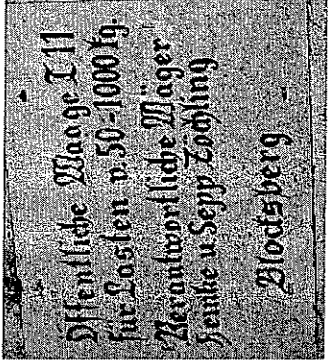 Öffentliche Waage T 11
für Lasten v. 50-1000 kg.
Verantwortliche Wäger
u. Sepp Zöchling
Blocksberg